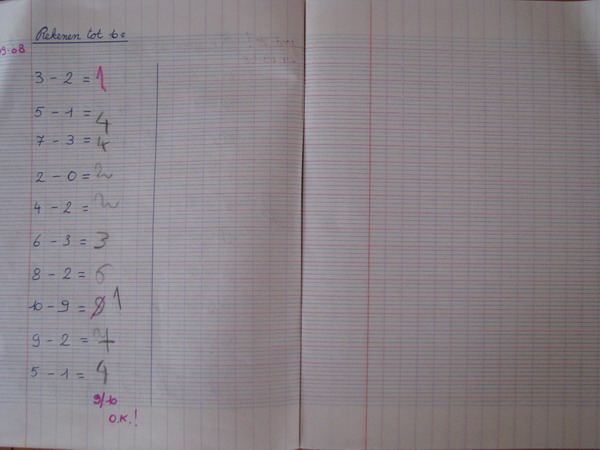 Rekenen tot 10
9-08
3 - 2 = 1
5 - 1 = 4
7 - 3 = 4
2 - 0 = 2
4 - 2 = 2
6 - 3 = 3
8 - 2 = 6
10 - 9 = 0 1
9 - 2 = 7
5 - 1 = 4
9/10
O.K.!